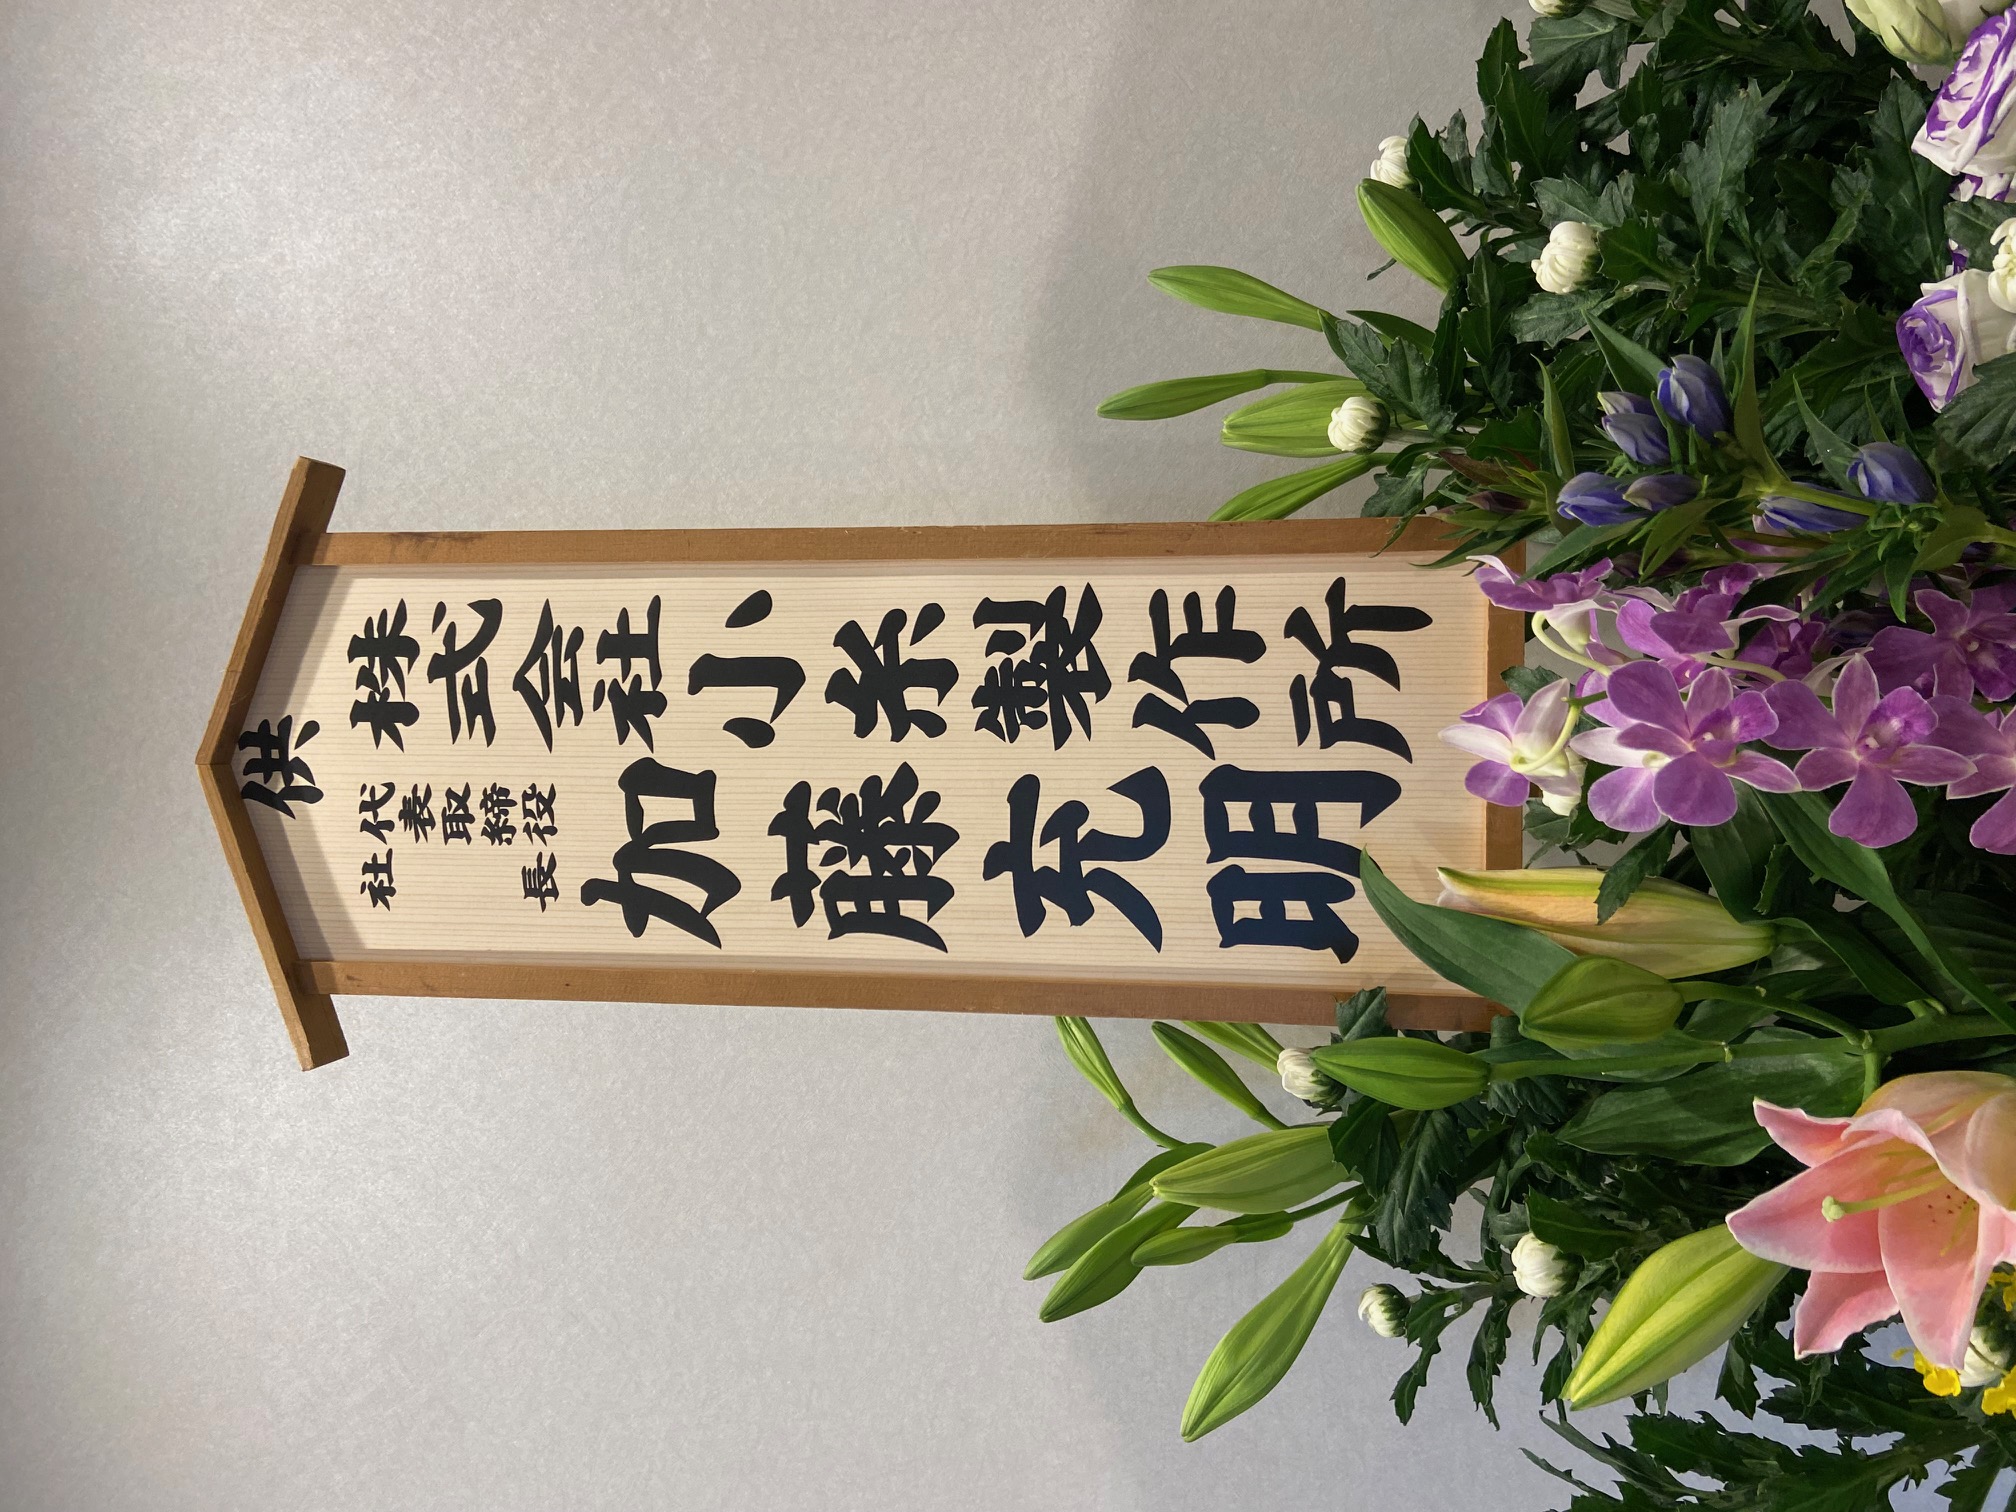 供
株式会社小糸製作所
代表取締役
社長
加藤充明